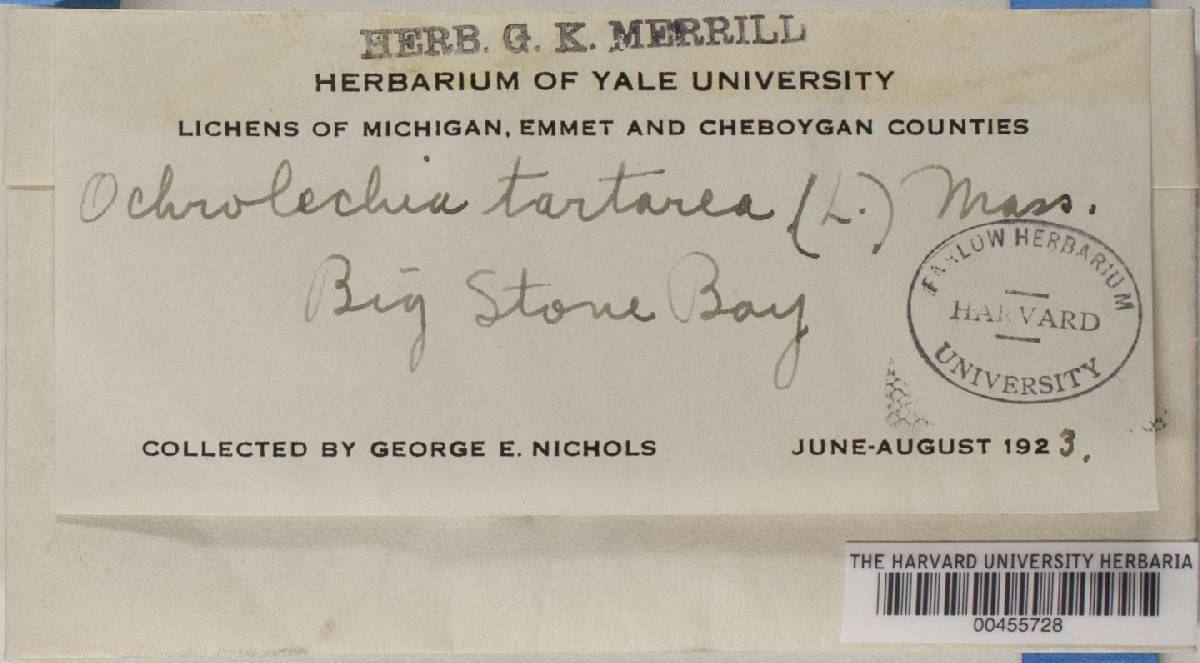 HERB. G. K. MERRILL
HERBARIUM OF YALE UNIVERSITY
LICHENS OF MICHIGAN, EMMET AND CHEBOYGAN COUNTIES
Ochrolechia tartarea (L.) Mass.
Big Stone Bay
FARLOW HERBARIUM
HARVARD
UNIVERSITY
COLLECTED BY GEORGE E. NICHOLS
JUNE-AUGUST 1923.
THE HARVARD UNIVERSITY HERBARIA
00455728